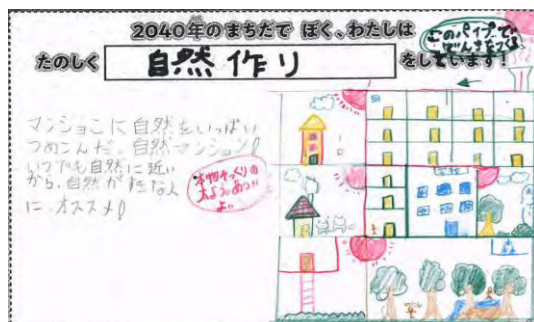 2040年のまちだで ぼく、わたしは
たのしく 自然作り をしています!
このパイプで
マンションに自然をいっぱい
つめこんだ、自然マンション!
いつでも自然に近い
から、自然が好きな人
に、オススメ!
本物そっくりの
太よう。あつい
よ。
学校